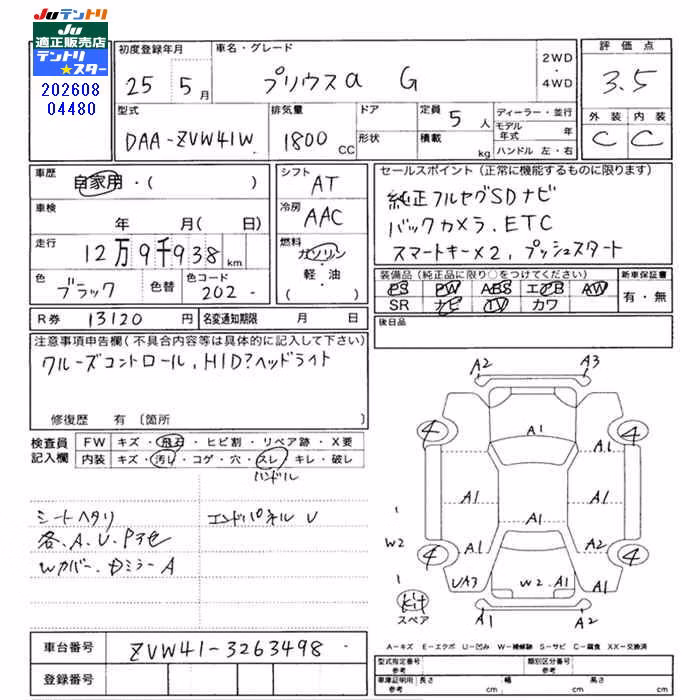 JUテントリ
JU
適正販売店
テントリ
★スター
202608
04480
初度登録年月
25 5月
車名・グレード
プリウスα G
2WD
・
4WD
評価点
3.5
外装 内装
C C
型式
DAA-ZVW41W
排気量
1800 CC
ドア
形状
定員 5人
積載 kg
ディーラー・並行
モデル年式 年
ハンドル 左・右
車歴
自家用・( )
車検
年 月( 日)
走行
12万9千938km
色
ブラック
色替
色コード
202
シフト
AT
冷房
AAC
燃料
ガソリン
・
軽・油
( )
セールスポイント(正常に機能するものに限ります)
純正フルセグSDナビ
バックカメラ、ETC
スマートキー×2、プッシュスタート
装備品(純正品に限り○をつけてください)
PS PW ABS エアB AW
SR ナビ TV カワ
新車保証書
有・無
後日品
R券 13120円
名変通知期限 月 日
注意事項申告欄(不具合内容等は具体的に記入して下さい)
クルーズコントロール、HID?ヘッドライト
修復歴 有〔箇所
検査員
記入欄
FW キズ・飛石・ヒビ割・リペア跡・X要
内装 キズ・汚レ・コゲ・穴・スレ・キレ・破レ
ハンドル
シートヘタリ
各、A、U、Pアセ
Wカバー、Dミラー A
エンドパネル U
A2 A3
A1
4 4
A1
A1 A1
A1
W2
4 4
A1 A2
UA3 W2、A1 A1
スペア
A1 A2
車台番号 ZVW41-3263498
登録番号
A−キズ E−エクボ U−凹み W−補修跡 S−サビ C−腐食 XX−交換済
型式指定番号
参考
類別区分番号
参考
車庫証明用
参考
長さ cm 幅 cm 高さ cm